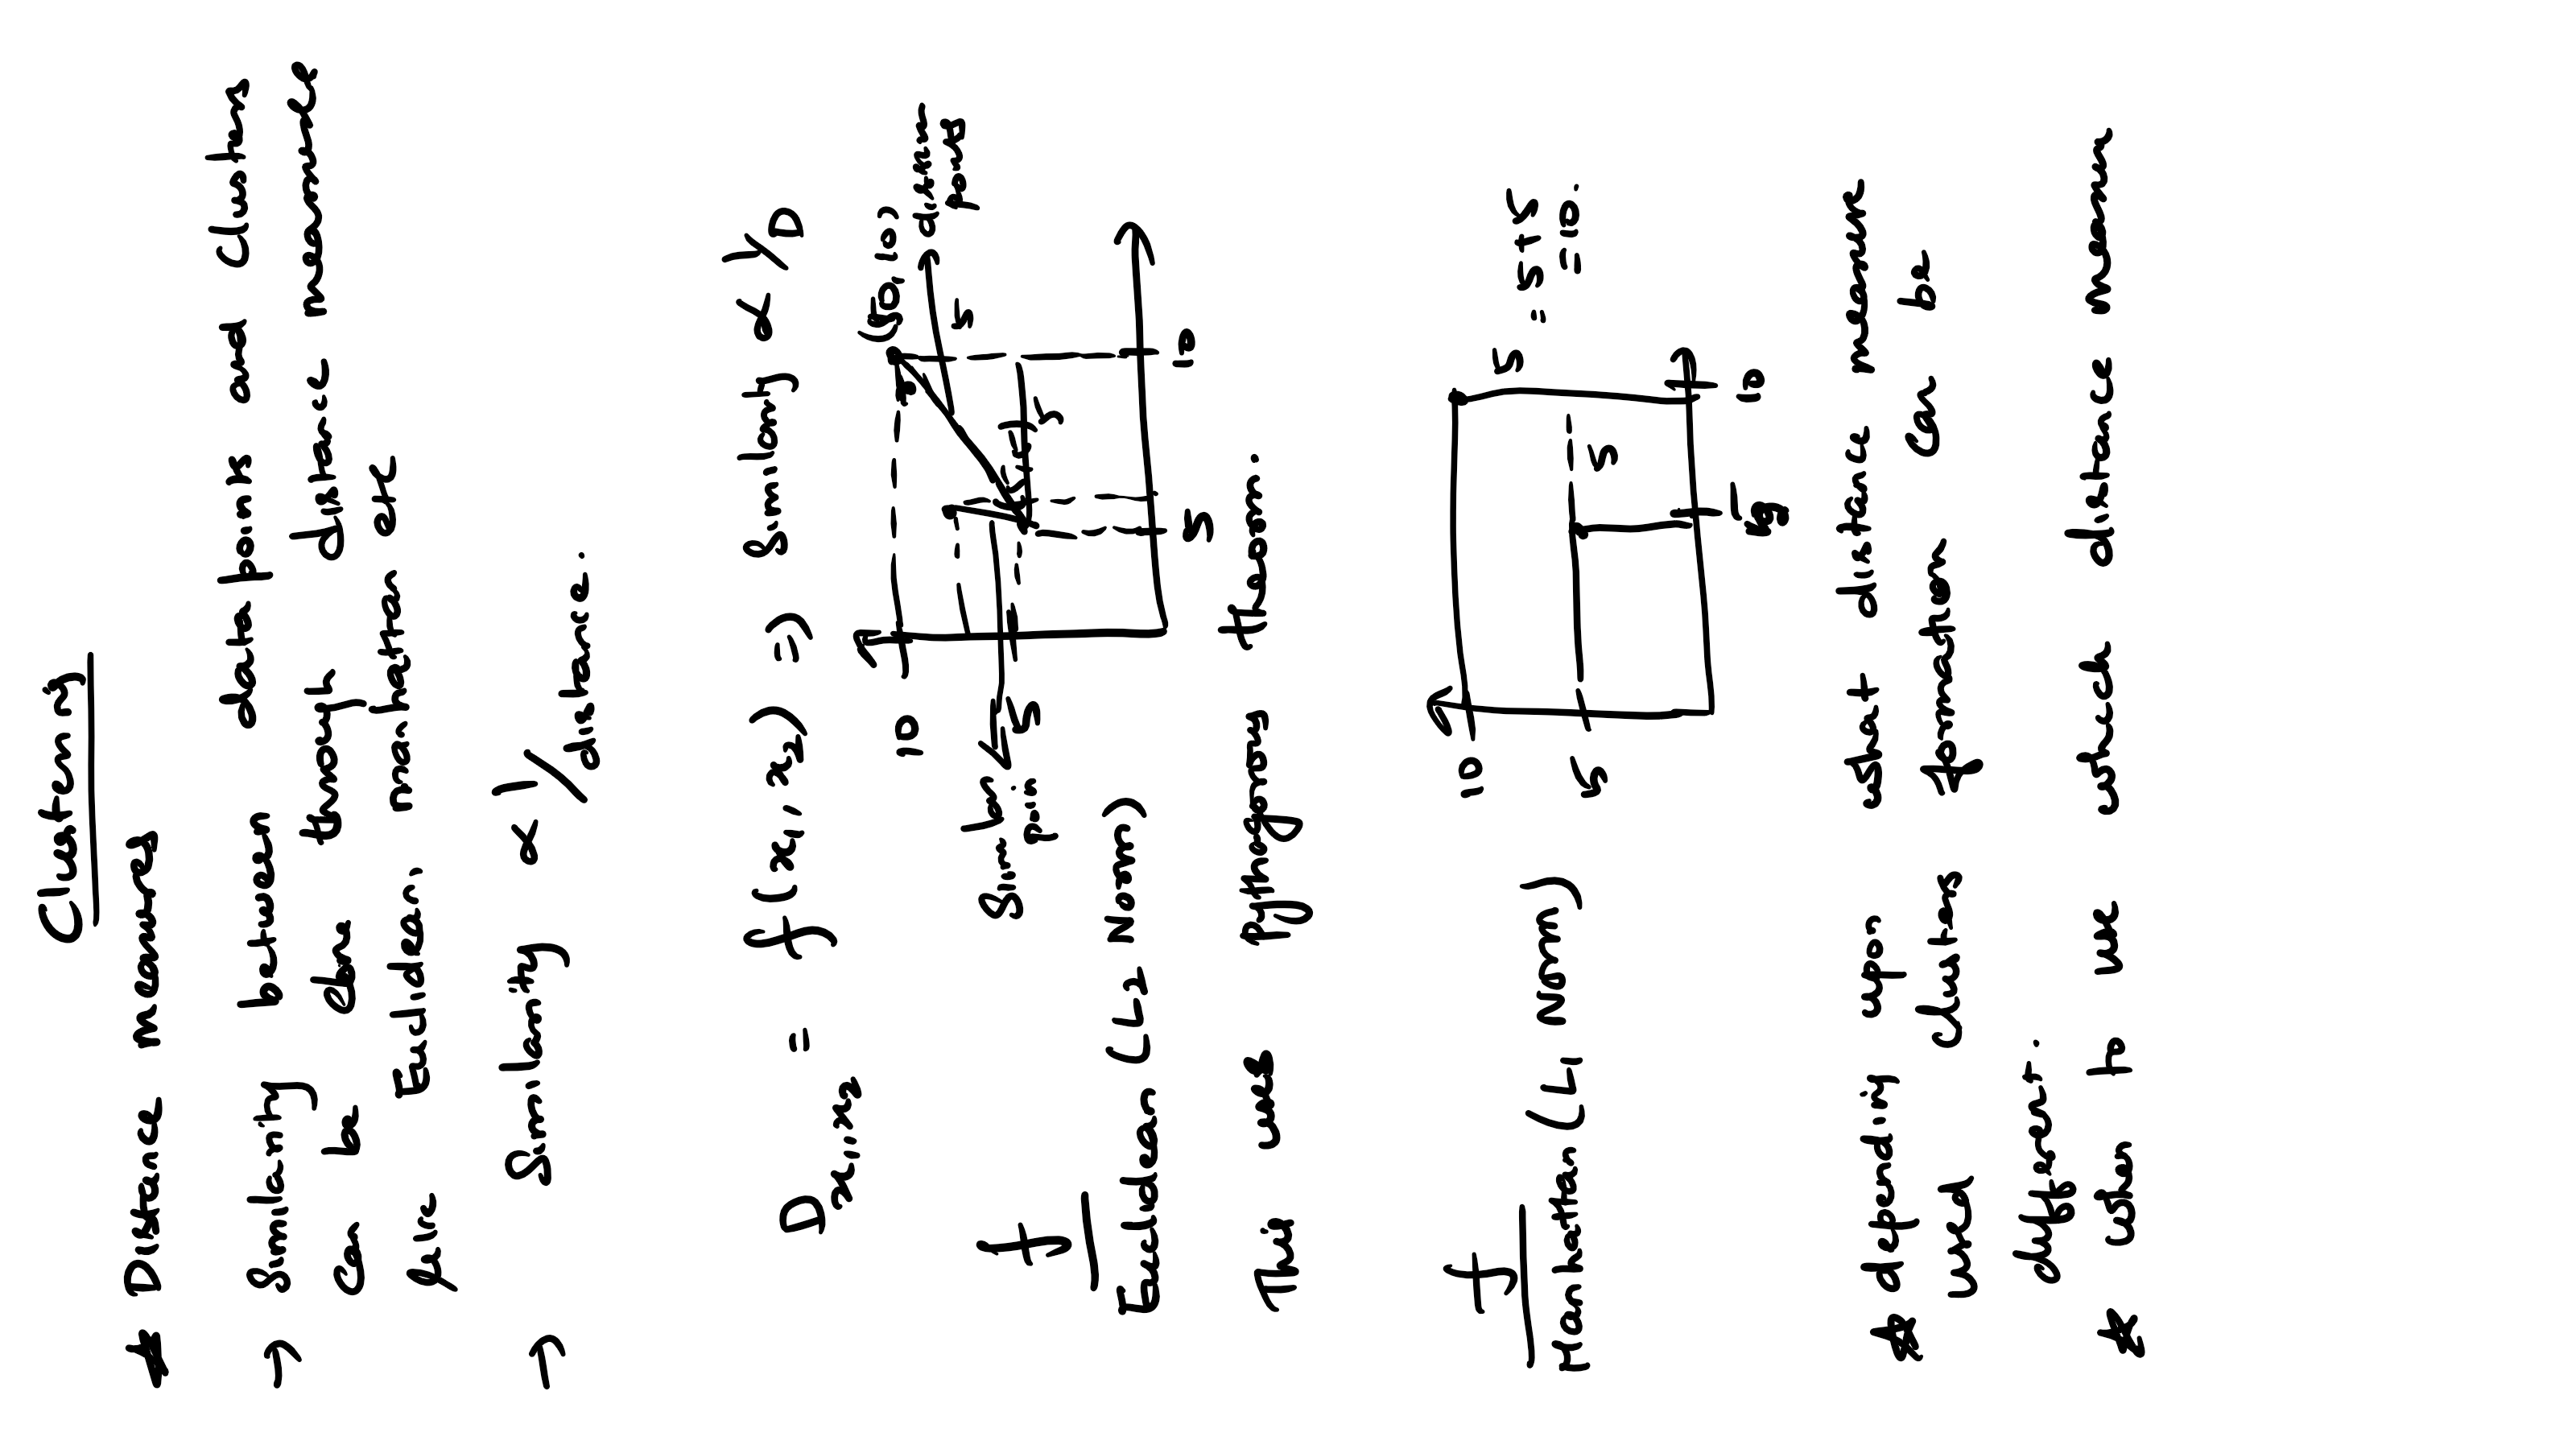 Clustering
* Distance measures
→ Similarity between data points and Clusters
can be done through distance measures
like Euclidean, manhattan etc
→ Similarity α 1/distance.
D x1,x2 = f(x1, x2) => Similarity α 1/D
f
(10,10)
10
5
(5,5)
5
5
5
10
Euclidean (L2 Norm)
This uses Pythagorous theorm.
f
Manhattan (L1 Norm)
10
5
5
5
10
= 5+5
=10.
* depending upon what distance measure
used clusters formation can be
different.
* when to use which distance measure